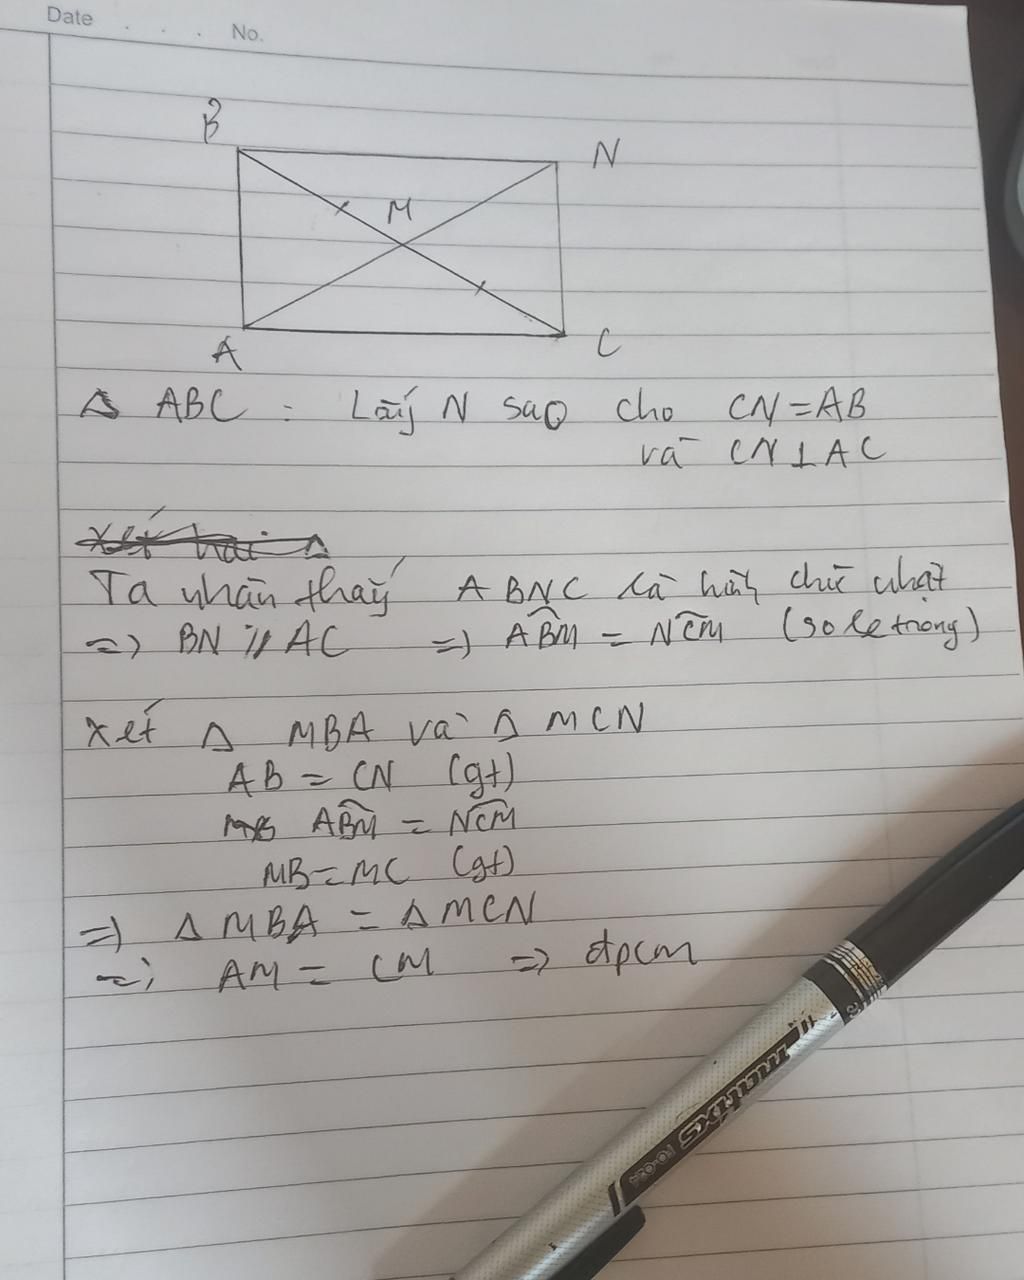 Date . . . No.
B
N
M
A
C
Δ ABC : Lấy N sao cho CN = AB
và CN ⊥ AC
Xét hai Δ
Ta nhận thấy ABNC là hình chữ nhật
=> BN // AC => ABM = NCM (so le trong)
Xét Δ MBA và Δ MCN
AB = CN (gt)
ABM = NCM
MB = MC (gt)
=> Δ MBA = Δ MCN
=> AM = CM => đpcm
matixs FO-024